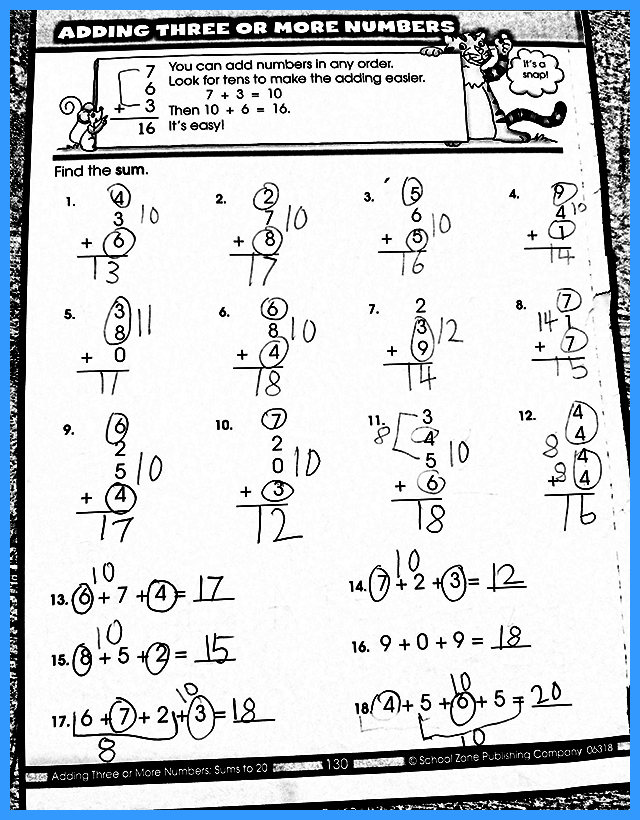 ADDING THREE OR MORE NUMBERS
7
6
+ 3
16
You can add numbers in any order.
Look for tens to make the adding easier.
7 + 3 = 10
Then 10 + 6 = 16.
It's easy!
It's a
snap!
Find the sum.
1. 4
3 10
+ 6
13
2. 2
7 10
+ 8
17
3. 5
6 10
+ 5
16
4. 9
4 10
+ 1
14
5. 3
8 11
+ 0
11
6. 6
8 10
+ 4
18
7. 2
3 12
+ 9
14
8. 7
14 1
+ 7
15
9. 6
2
5 10
+ 4
17
10. 7
2
0 10
+ 3
12
11. 3
8 4
5 10
+ 6
18
12. 4
8 4
4
+ 8 4
16
10
13. 6 + 7 + 4 = 17
10
14. 7 + 2 + 3 = 12
10
15. 8 + 5 + 2 = 15
16. 9 + 0 + 9 = 18
10
17. 6 + 7 + 2 + 3 = 18
8
10
18. 4 + 5 + 6 + 5 = 20
10
Adding Three or More Numbers: Sums to 20 130 © School Zone Publishing Company 06318